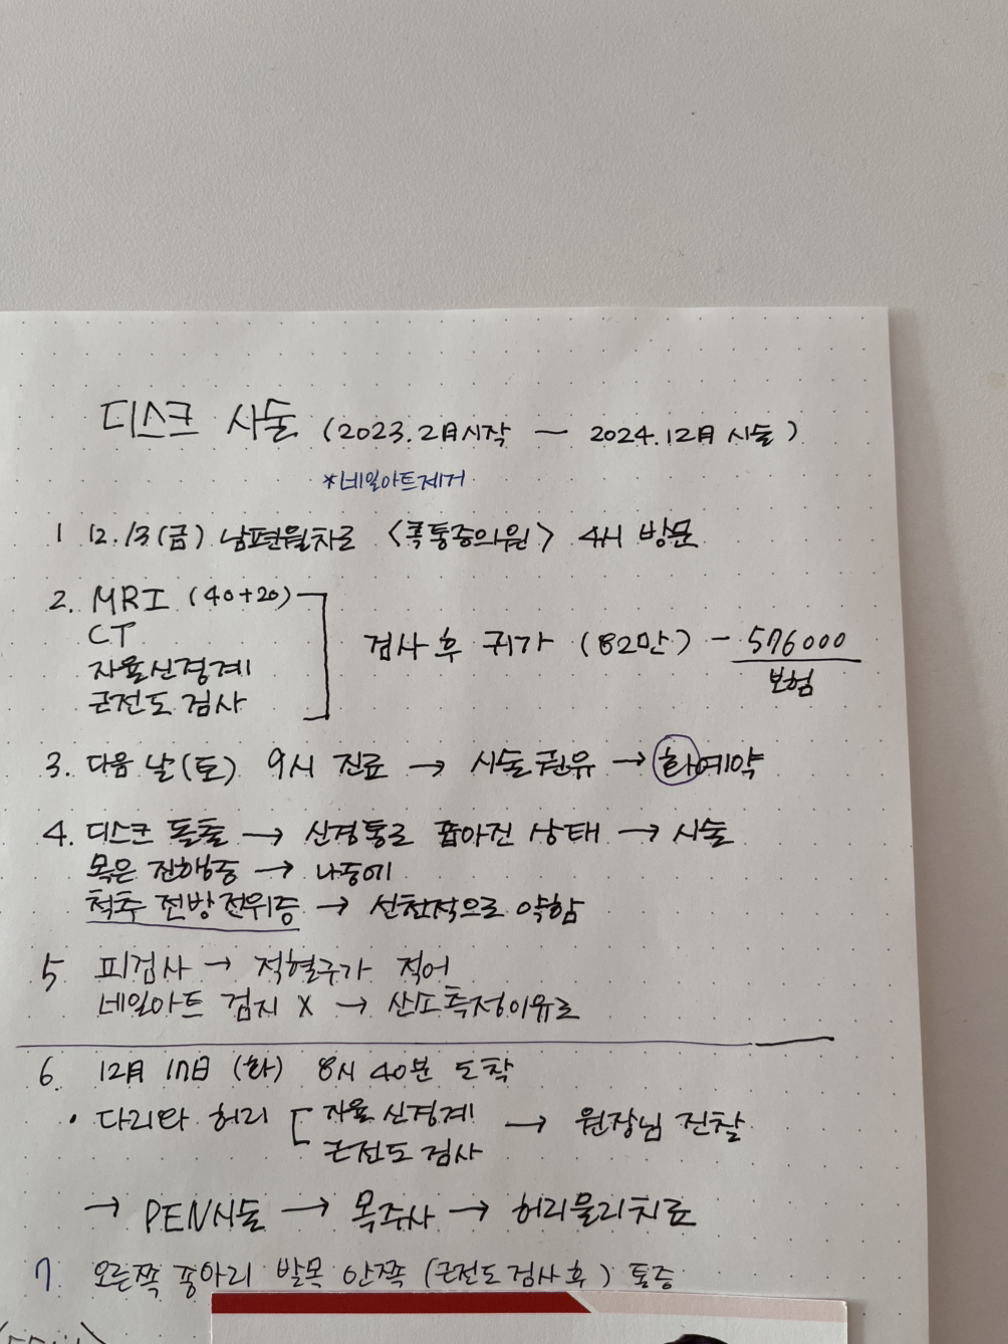 디스크 시술 (2023.2月시작 — 2024.12月 시술)
*네일아트제거
1 12.13(금) 남편월차로 <콕통증의원> 4시 방문
2. MRI (40+20)
CT
자율신경계
근전도 검사
검사 후 귀가 (82만) - 576000
보험
3. 다음 날(토) 9시 진료 → 시술권유 → 화예약
4. 디스크 돌출 → 신경통로 좁아진 상태 → 시술
목은 진행중 → 나중에
척추 전방전위증 → 선천적으로 약함
5 피검사 → 적혈구가 적어
네일아트 검지 X → 산소측정이유로
6. 12月 17日 (화) 8시 40분 도착
• 다리와 허리 [ 자율 신경계
근전도 검사 → 원장님 진찰
→ PEN시술 → 목주사 → 허리물리치료
7. 오른쪽 종아리 발목 안쪽 (근전도검사후) 통증